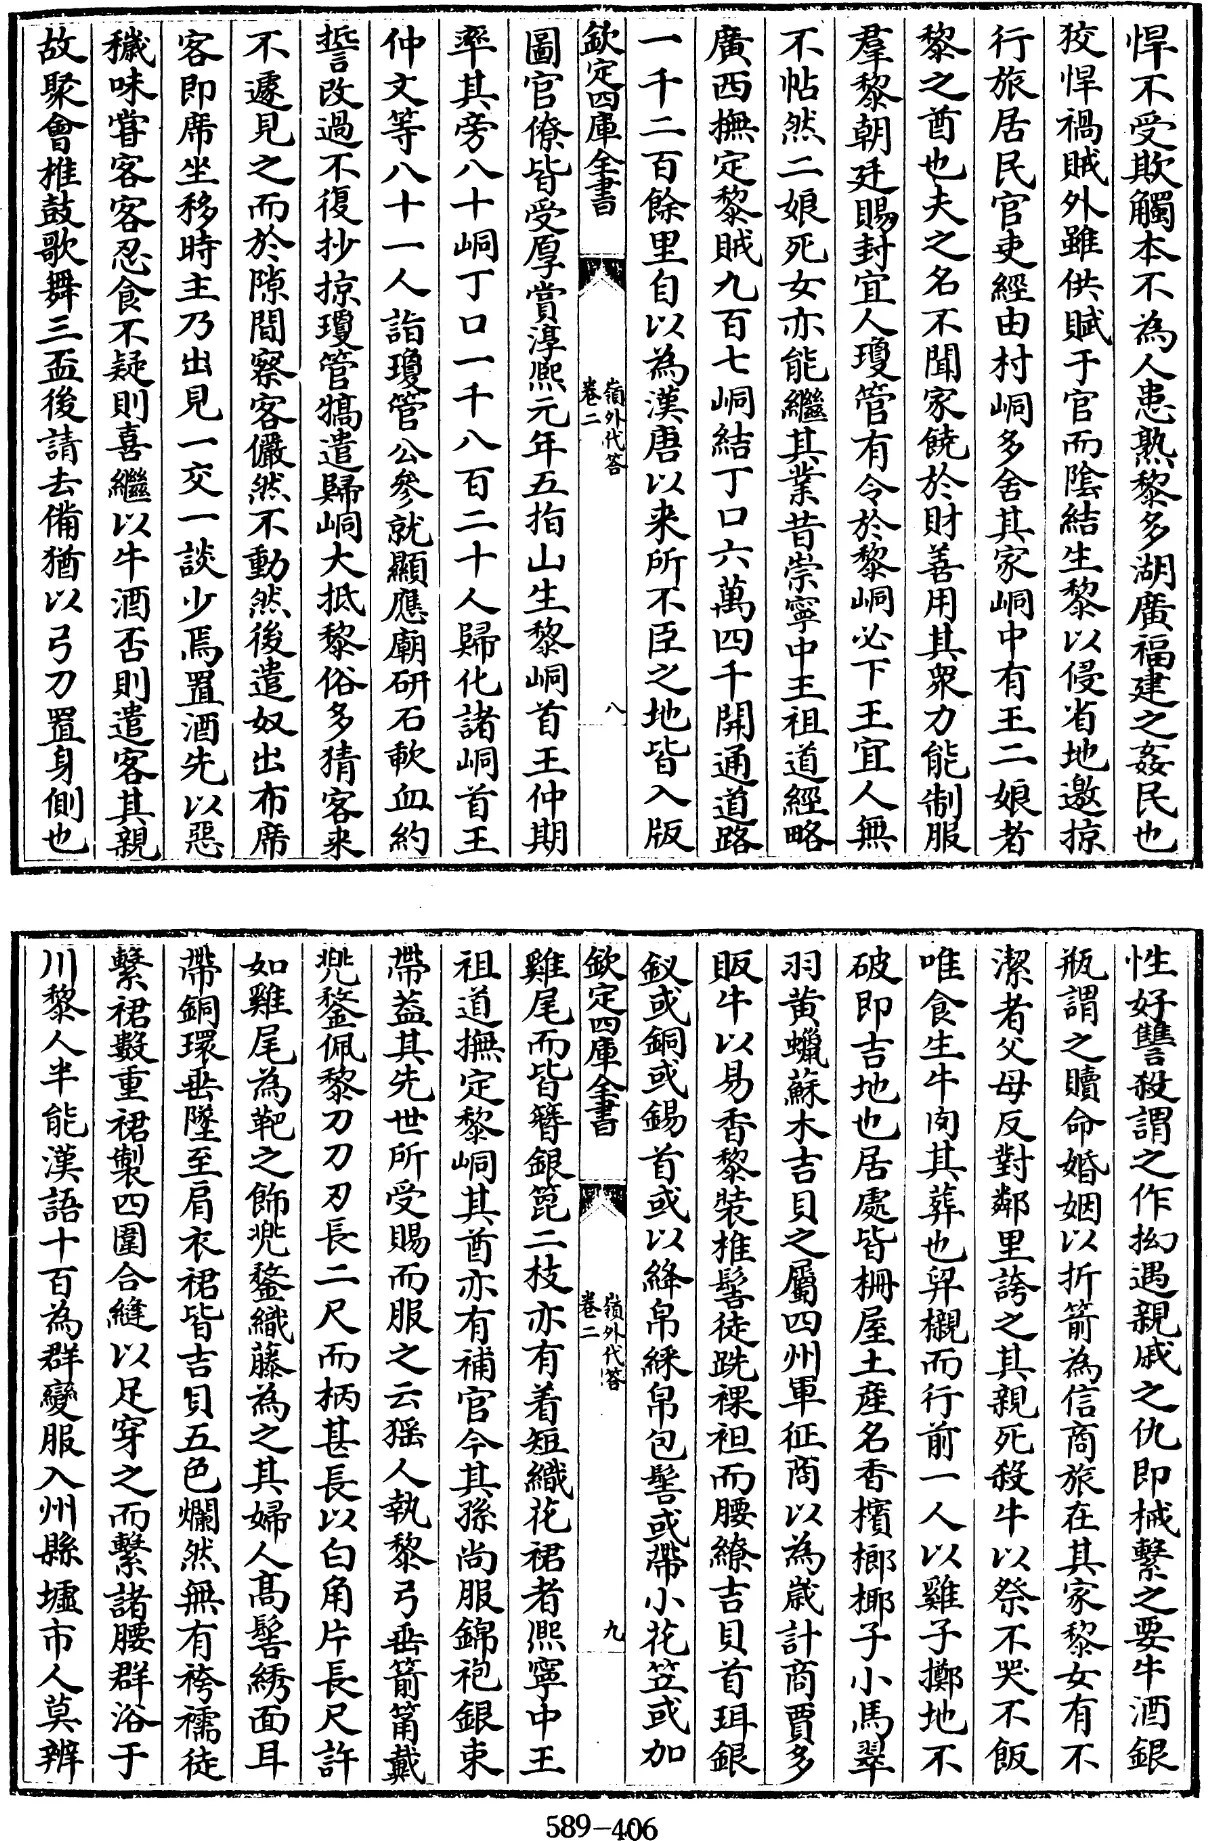 悍不受欺觸本不為人患熟黎多湖廣福建之姦民也
狡悍禍賊外雖供賦于官而陰結生黎以侵省地邀掠
行旅居民官吏經由村峒多舍其家峒中有王二娘者
黎之酋也夫之名不聞家饒於財善用其衆力能制服
羣黎朝廷賜封宜人瓊管有令於黎峒必下王宜人無
不帖然二娘死女亦能繼其業昔崇寧中王祖道經略
廣西撫定黎賊九百七峒結丁口六萬四千開通道路
一千二百餘里自以為漢唐以来所不臣之地皆入版
欽定四庫全書
嶺外代答
卷二
八
圖官僚皆受厚賞淳熈元年五指山生黎峒首王仲期
率其旁八十峒丁口一千八百二十人歸化諸峒首王
仲文等八十一人詣瓊管公參就顯應廟研石歃血約
誓改過不復抄掠瓊管犒遣歸峒大抵黎俗多猜客来
不遽見之而於隙間察客儼然不動然後遣奴出布席
客即席坐移時主乃出見一交一談少焉置酒先以惡
穢味甞客客忍食不疑則喜繼以牛酒否則遣客其親
故聚會椎鼓歌舞三盃後請去備猶以弓刀置身側也
性好讐殺謂之作拗遇親戚之仇即械繫之要牛酒銀
瓶謂之贖命婚姻以折箭為信商旅在其家黎女有不
潔者父母反對鄰里誇之其親死殺牛以祭不哭不飯
唯食生牛肉其葬也舁櫬而行前一人以雞子擲地不
破即吉地也居處皆柵屋土產名香檳榔椰子小馬翠
羽黄蠟蘇木吉貝之屬四州軍征商以為歲計商賈多
販牛以易香黎裝椎髻徒跣裸袒而腰繚吉貝首珥銀
釵或銅或錫首或以絳帛綵帛包髻或帶小花笠或加
欽定四庫全書
嶺外代答
卷二
九
雞尾而皆簪銀篦二枝亦有着短織花裙者熈寧中王
祖道撫定黎峒其酋亦有補官今其孫尚服錦袍銀束
帶葢其先世所受賜而服之云猺人執黎弓垂箭箙戴
兜鍪佩黎刀刀刃長二尺而柄甚長以白角片長尺許
如雞尾為靶之飾兜鍪織藤為之其婦人髙髻綉面耳
帶銅環垂墜至肩衣裙皆吉貝五色爛然無有袴襦徒
繫裙數重裙製四圍合縫以足穿之而繫諸腰群浴于
川黎人半能漢語十百為群變服入州縣墟市人莫辨
589-406